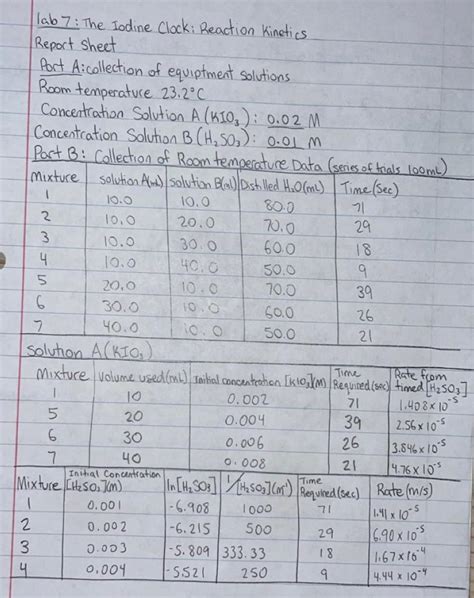 lab 7: The Iodine Clock: Reaction Kinetics
Report Sheet
Part A: collection of equiptment solutions
Room temperature 23.2°C
Concentration Solution A (KIO₃): 0.02 M
Concentration Solution B (H₂SO₃): 0.01 M
Part B: Collection of Room temperature Data (series of trials 100mL)
Mixture solution A(mL) solution B(mL) Distilled H₂O(mL) Time (sec)
1 10.0 10.0 80.0 71
2 10.0 20.0 70.0 29
3 10.0 30.0 60.0 18
4 10.0 40.0 50.0 9
5 20.0 10.0 70.0 39
6 30.0 10.0 60.0 26
7 40.0 10.0 50.0 21
Solution A (KIO₃)
Mixture Volume used (mL) Initial concentration [KIO₃](M) Time Required (sec) Rate from timed [H₂SO₃]
1 10 0.002 71 1.408 x 10⁻⁵
5 20 0.004 39 2.56 x 10⁻⁵
6 30 0.006 26 3.846 x 10⁻⁵
7 40 0.008 21 4.76 x 10⁻⁵
Mixture Initial Concentration [H₂SO₃](M) ln[H₂SO₃] 1/[H₂SO₃](M⁻¹) Time Required (sec) Rate (m/s)
1 0.001 -6.908 1000 71 1.41 x 10⁻⁵
2 0.002 -6.215 500 29 6.90 x 10⁻⁵
3 0.003 -5.809 333.33 18 1.67 x 10⁻⁴
4 0.004 -5.521 250 9 4.44 x 10⁻⁴